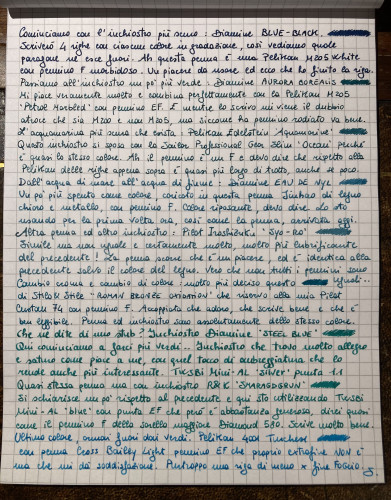 Cominciamo con l'inchiostro più scuro: Diamine BLUE-BLACK.
Scriverò 4 righe con ciascun colore in gradazione, così vediamo quale
paragone ne esce fuori. Ah questa penna è una Pelikan M205 White
con pennino F morbidoso. Un piacere da usare ed ecco che ho finito la riga.
Passiamo all'inchiostro un po' più verde: Diamine AURORA BOREALIS
Mi piace veramente molto e combina perfettamente con la Pelikan M205
'Petrol Marbled' con pennino EF. E mentre lo scrivo mi viene il dubbio
atroce che sia M200 e non M205, ma siccome ha pennino rodiato va bene.
L'acquamarina più scura che esista: Pelikan Edelstein 'Aquamarine'
Questo inchiostro si sposa con la Sailor Professional Gear Slim 'Ocean' perché
è quasi lo stesso colore. Ah il pennino è un F e devo dire che rispetto alla
Pelikan delle righe appena sopra è quasi più largo di tratto, anche se poco.
Dall'acqua di mare all'acqua di fiume: Diamine EAU DE NYL
Un po' più spento come colore, caricato in questa penna Jinhao di legno
chiaro e metallo, con pennino F. Colore riposante, devo dire. Lo sto
usando per la prima volta ora, così come la penna, arrivata oggi.
Altra penna ed altro inchiostro: Pilot Iroshizuku 'Syo-ro'
Simile ma non uguale e certamente molto, molto più lubrificante
del precedente! La penna scorre che è un piacere, ed è identica alla
precedente salvo il colore del legno. Vero che non tutti i pennini sono
Cambio scena e cambio di colore: molto più deciso questo uguali...
di Stilo & Stile "ROMAN BRONZES OXIDATION" che riservo alla mia Pilot
Custom 74 con pennino F. Accoppiata che adoro, che scrive bene e che è
ben leggibile. Penna ed inchiostro sono assolutamente dello stesso colore.
che ne dite di uno step? Inchiostro Diamine 'STEEL BLUE'
Qui cominciamo a farci più verdi... Inchiostro che trovo molto allegro
e saturo come piace a me, con quel tocco di ombreggiatura che lo
rende anche più interessante. TWSBI Mini-AL 'Silver' punta 1.1
Quasi stessa penna ma con inchiostro R&K 'SMARAGDGRÜN'
Si schiarisce un po' rispetto al precedente e qui sto utilizzando TWSBI
Mini-AL 'blue' con punta EF che però è abbastanza generosa, direi quasi
come il pennino F della sorella maggiore Diamond 580. Scrive molto bene.
Ultimo colore, ormai fuori dai verdi. Pelikan 4001 Turchese
con penna Cross Bailey Light pennino EF che proprio extrafine NON è
ma che mi dà soddisfazione. Purtroppo una riga di meno x fine FOGLIO